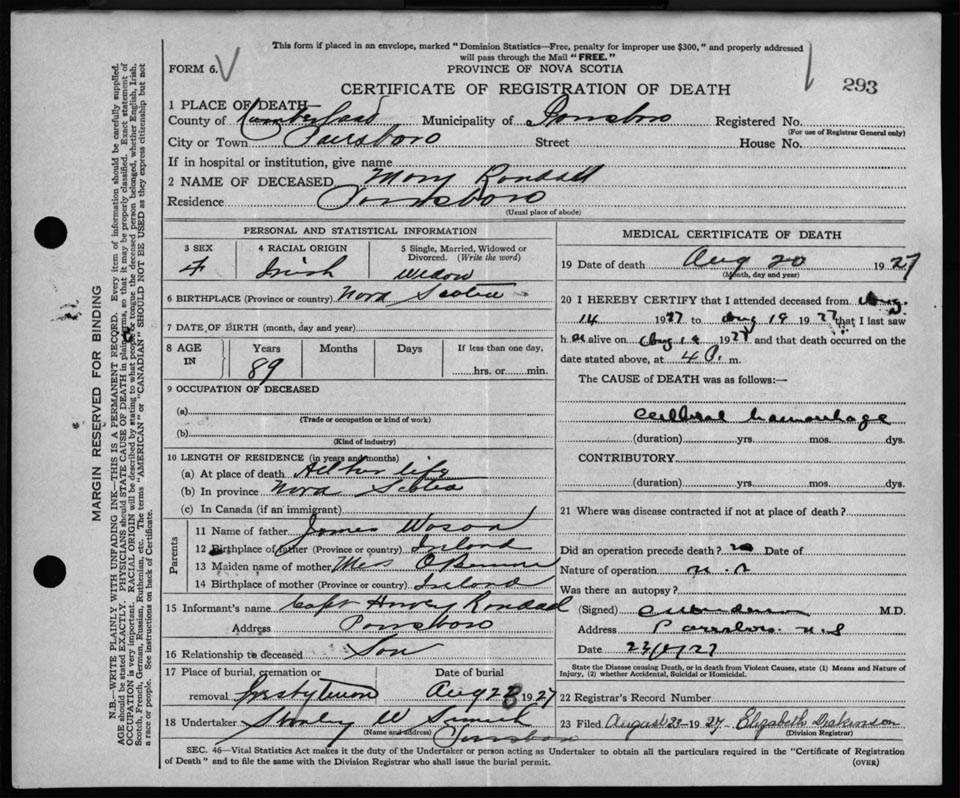 This form if placed in an envelope, marked "Dominion Statistics—Free, penalty for improper use $300," and properly addressed
will pass through the Mail "FREE."
FORM 6. V
PROVINCE OF NOVA SCOTIA
293
CERTIFICATE OF REGISTRATION OF DEATH
1 PLACE OF DEATH—
County of Cumberland Municipality of Parrsboro Registered No.
(For use of Registrar General only)
City or Town Parrsboro Street House No.
If in hospital or institution, give name
2 NAME OF DECEASED Mary Randall
Residence Parrsboro
(Usual place of abode)
PERSONAL AND STATISTICAL INFORMATION
3 SEX 4 RACIAL ORIGIN 5 Single, Married, Widowed or
Divorced. (Write the word)
F Irish Widow
6 BIRTHPLACE (Province or country) Nova Scotia
7 DATE OF BIRTH (month, day and year)
8 AGE IN Years Months Days If less than one day,
89 hrs. or min.
9 OCCUPATION OF DECEASED
(a)
(Trade or occupation or kind of work)
(b)
(Kind of industry)
10 LENGTH OF RESIDENCE (in years and months)
(a) At place of death All her life
(b) In province Nova Scotia
(c) In Canada (if an immigrant)
Parents
11 Name of father James
12 Birthplace of father (Province or country) Ireland
13 Maiden name of mother Miss
14 Birthplace of mother (Province or country) Ireland
15 Informant's name Capt Harvey Randall
Address Parrsboro
16 Relationship to deceased Son
17 Place of burial, cremation or Date of burial
removal Presbyterian Aug 22 1927
18 Undertaker W
(Name and address) Parrsboro
MEDICAL CERTIFICATE OF DEATH
19 Date of death Aug 20 1927
(Month, day and year)
20 I HEREBY CERTIFY that I attended deceased from Aug.
14 1927 to Aug 19 1927 that I last saw
her alive on Aug 19 1927 and that death occurred on the
date stated above, at 4 P. m.
The CAUSE of DEATH was as follows:—
Cerebral hemorrhage
(duration) yrs. mos. dys.
CONTRIBUTORY
(duration) yrs. mos. dys.
21 Where was disease contracted if not at place of death?
Did an operation precede death? no Date of
Nature of operation
Was there an autopsy?
(Signed) M.D.
Address Parrsboro N.S
Date
State the Disease causing Death, or in death from Violent Causes, state (1) Means and Nature of
Injury, (2) whether Accidental, Suicidal or Homicidal.
22 Registrar's Record Number
23 Filed August 1927 Elizabeth
(Division Registrar)
SEC. 46—Vital Statistics Act makes it the duty of the Undertaker or person acting as Undertaker to obtain all the particulars required in the "Certificate of Registration
of Death" and to file the same with the Division Registrar who shall issue the burial permit.
(OVER)
MARGIN RESERVED FOR BINDING
N.B.—WRITE PLAINLY WITH UNFADING INK—THIS IS A PERMANENT RECORD. Every item of information should be carefully supplied.
AGE should be stated EXACTLY. PHYSICIANS should STATE CAUSE OF DEATH in plain terms, so that it may be properly classified. Exact statement of
OCCUPATION is very important. RACIAL ORIGIN will be described by stating to what people or tongue the deceased person belonged, whether English, Irish,
Scotch, French, German, Russian, Ruthenian, etc. The terms "AMERICAN" or "CANADIAN" SHOULD NOT BE USED as they express citizenship but not
a race or people. See instructions on back of Certificate.